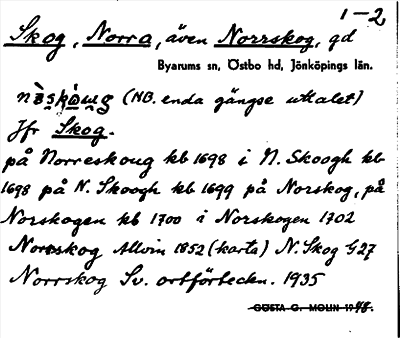 1-2
Skog, Norra, även Norrskog, gd
Byarums sn, Östbo hd, Jönköpings län.
(NB. enda gängse uttalet)
Jfr Skog.
på Norreskoug kb 1698 i N. Skoogh kb
1698 på N. Skoogh kb 1699 på Norskog, på
Norskogen kb 1700 i Norskogen 1702
Norrskog Allvin 1852 (karta) N. Skog G27
Norrskog Sv. ortförteckn. 1935
GÖSTA G. MOLIN 1948.